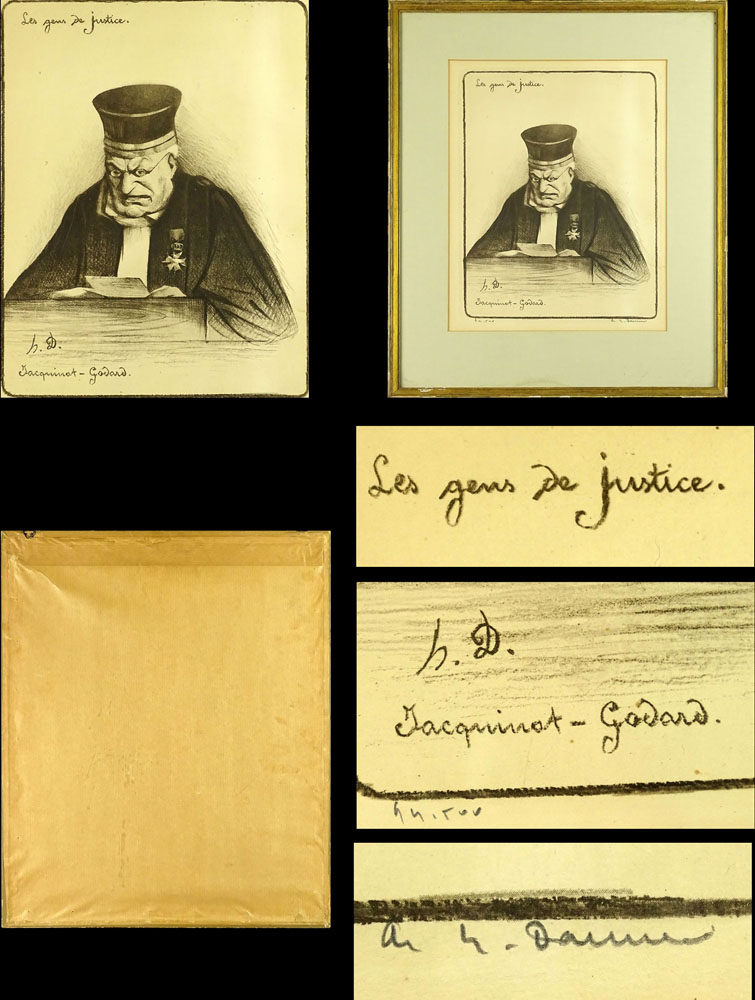 Les gens de justice.
h. D.
Jacquinot - Godard.
Les gens de justice.
h. D.
Jacquinot - Godard.
Les gens de justice.
h. D.
Jacquinot - Godard.